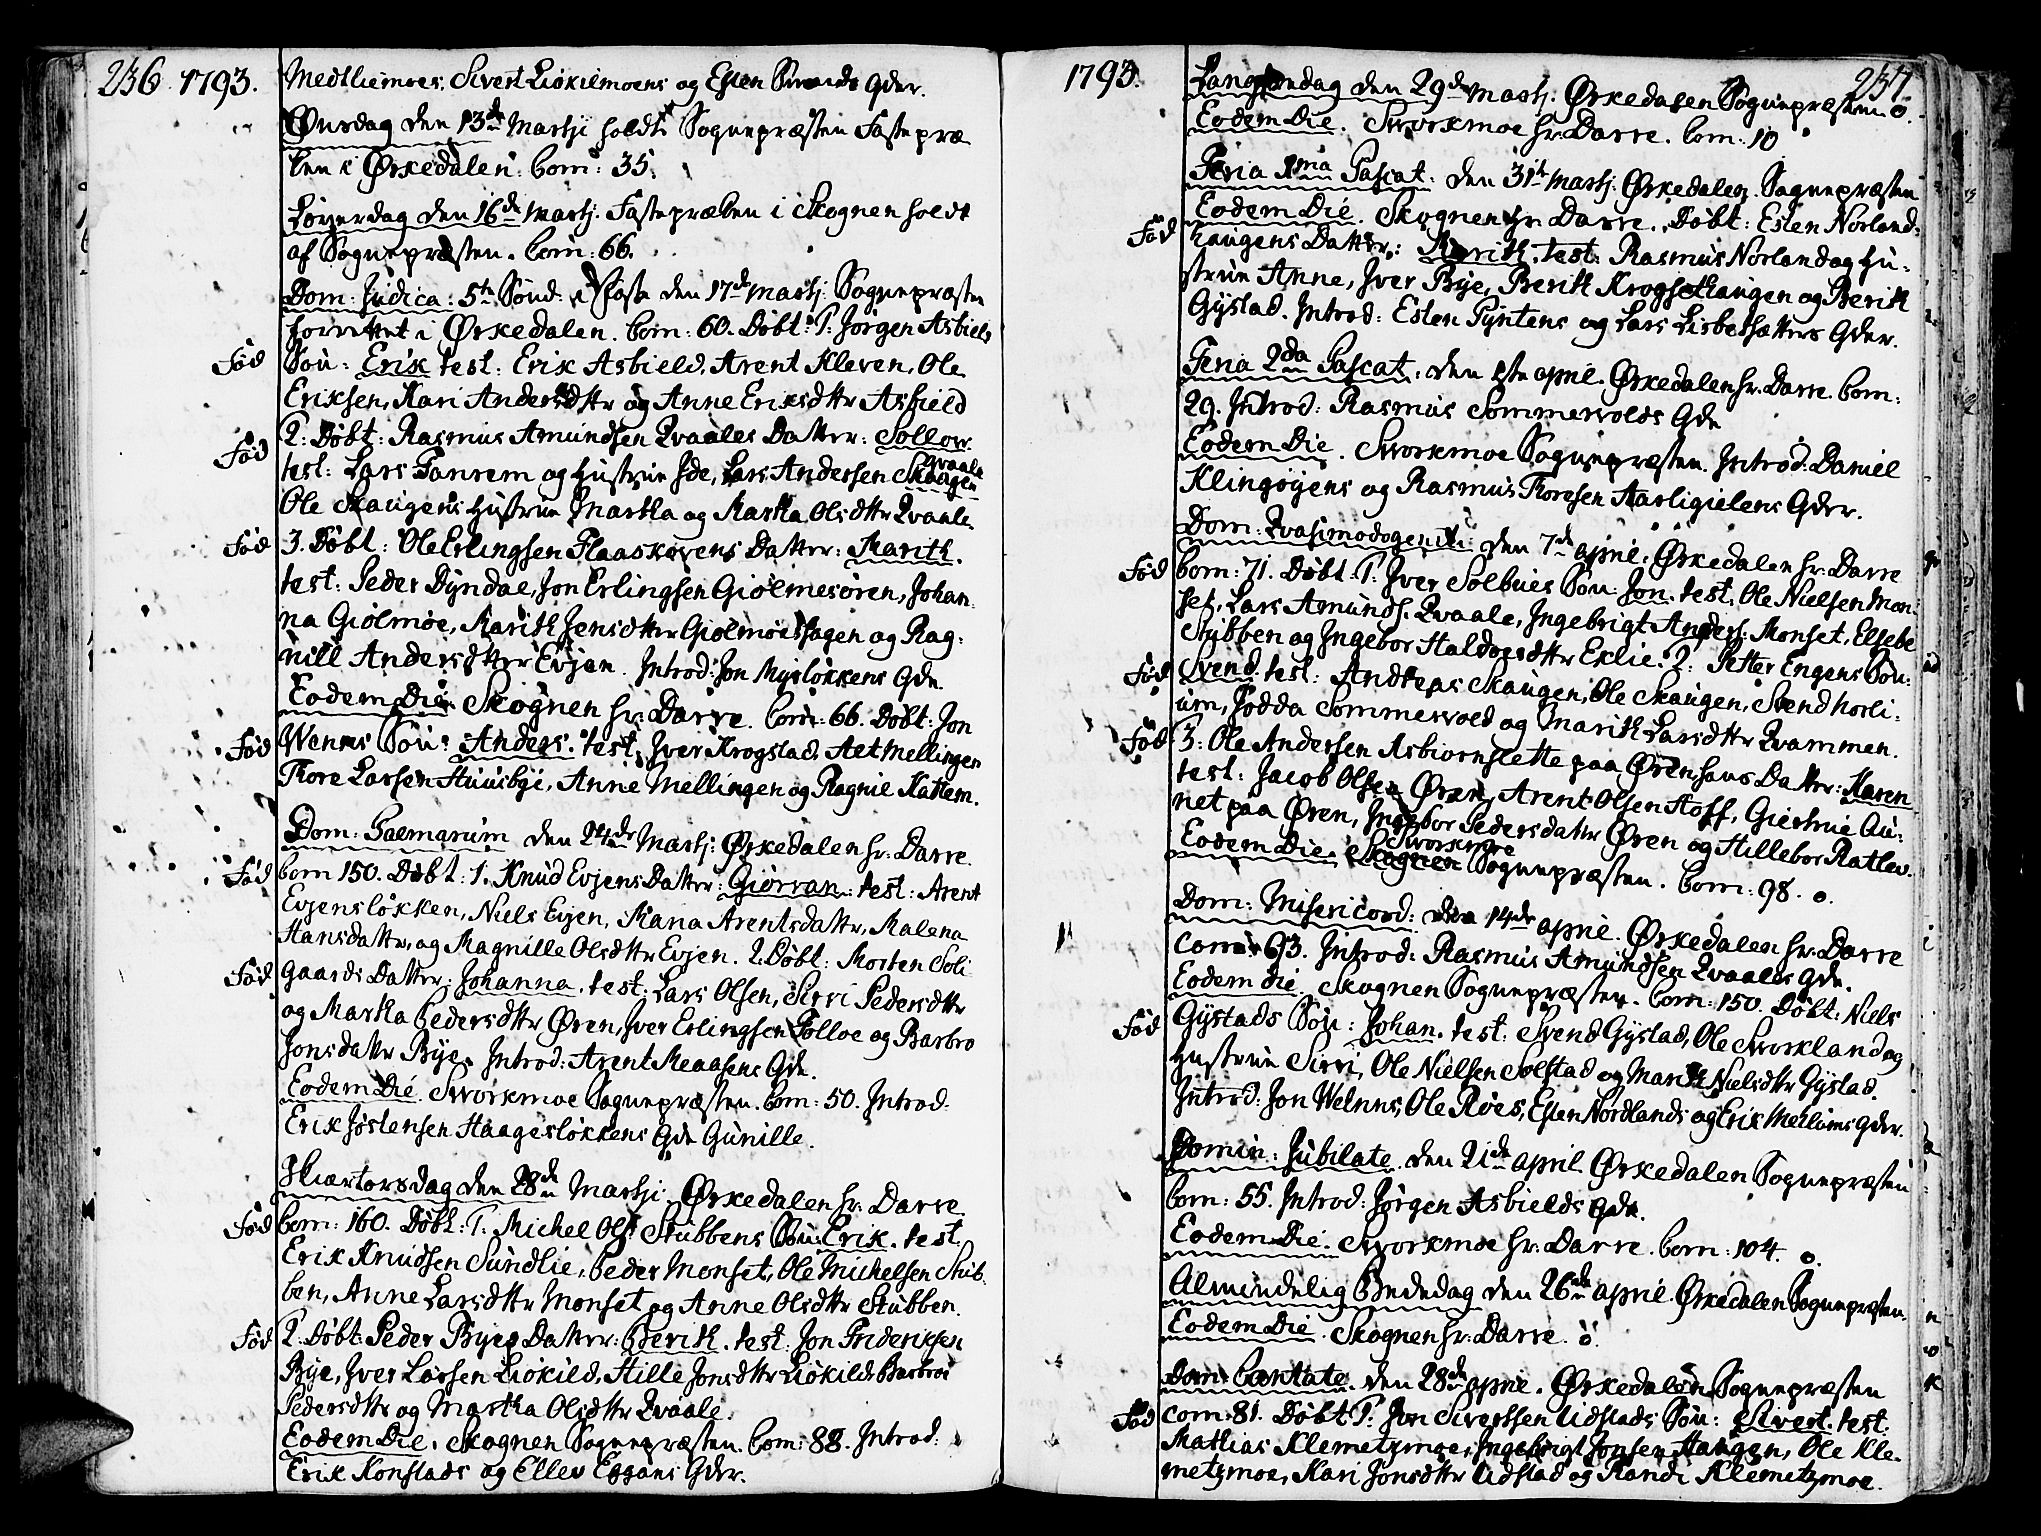 236. 1793.
Medtliemoes, Sivert Liøkilmoens og Esten Sunds Gder.
Onsdag den 13de Martji holdt Sognepræsten Fastepræ
ken i Ørkedalen. Com: 35.
Løverdag den 16de Martj. Fastepræken i Skognen holdt
af Sognepræsten. Com: 66.
Dom: Judica: 5te Sönd: i Faste den 17de Martj: Sognepræsten
forrettet i Ørkedalen. Com: 60. Döbt: 1: Jørgen Asbields
Föd
Sön: Erik test: Erik Asbield, Arent Kleven, Ole
Eriksen, Kari Andersdttr og Anne Eriksdttr Asbield
Föd
2: Döbt: Rasmus Amundsen Qvaales Datter: Sollow
test: Lars Fanrem og Hustrue Ide, Lars Andersen Qvaale
Ole Skaugens Hustrue Martha og Martha Olsdttr Qvaale.
Föd
3. Döbt: Ole Erlingsen Flaaskørens Datter: Marith.
test: Peder Dyndal, Jon Erlingsen Giølmesøren, Johan-
na Giølmøe, Marith Jensdttr Giølmøeshagen og Rag:
nill Andersdttr Evjen. Introd: Jon Mysløkkens Gde.
Eodem Die Skognen hr: Darre. Com: 66. Döbt: Jon
Föd
Wenns Sön: Anders. test, Jver Krogstad, Alt Mellingen
Thore Larsen Huusbye, Anne Mellingen og Ragnil Kattem.
Dom: Palmarum den 24de Martj: Ørkedalen hr: Darre.
Föd
Com 150. Döbt: 1. Knud Evjens Datter: Giørvan: test: Arent
Evjensløkken, Niels Evjen, Mana Arentsdattr, Malena
Hansdattr, og Magnille Olsdttr Evjen. 2. Döbt: Morten Soli-
Föd
gaards Datter: Johanna. test: Lars Olsen, Sirri Pedersdttr
og Martha Pedersdttr Øren, Jver Erlingsen Folloe og Barbro
Jonsdattr Bye. Introd: Arent Meaasens Gde.
Eodem Die Sworkmoe Sognepræsten. Com: 50. Introd:
Erik Jøstensen Haagesløkkens Gde Gunille.
Skiærtorsdag den 28de Martji Ørkedalen hr: Darre.
Föd
Com: 160. Döbt: 1. Michel Ols: Stubbens Sön: Erik. test.
Erik Knudsen Sundlie, Peder Monset, Ole Michelsen Stub-
ben, Anne Larsdttr Monset og Anne Olsdttr Stubben.
Föd
2. Döbt: Peder Byes Datter: Berith. test: Jon Frideriksen
Bye, Jver Larsen Liøkild, Hille Jonsdttr Liøkild, Barbroe
Pedersdttr og Martha Olsdttr Qvaale.
Eodem Die. Skognen Sognepræsten. Com: 88. Introd:
Erik Konstads og Ellev Eggans Gder.
1793.
237.
Langfredag den 29de Martj: Ørkedalen Sognepræsten. o.
Eodem Die. Sworkmoe hr: Darre. Com: 10
Feria 1ma Pascat: den 31te Martj. Ørkedalen. Sognepræsten
Eodem Die. Skognen hr: Darre. Döbt: Esten Norland:
Föd
haugens Datter: Marith. test: Rasmus Norland og Hu-
strue Anne, Jver Bye, Berith Krogsethaugen og Berith
Gystad. Introd: Esten Pyntens og Lars Lisbetsætters Gder.
Feria 2da Pascat: den 1ste april. Ørkedalen hr: Darre. Com:
29. Introd: Rasmus Sommervolds Gde
Eodem Die. Sworkmoe Sognepræsten. Introd: Daniel
Klingøyens og Rasmus Thoresen Aarligielens Gder.
Dom: Qvasimodogeniti: den 7de april: Ørkedalen hr: Darre
Föd
Com: 71. Döbt: 1: Jver Solbues Sön: Jon. test, Ole Nielsen Mon:
set, Lars Amunds. Qvaale, Ingebrigt Anders: Monset, Elsebe
Stubben og Ingebor Haldorsdttr Eklie. 2: Petter Engens Sön:
Föd
Svend. test: Andreas Skaugen, Ole Skaugen, Svend horli:
um, Jødda Sommervold og Marith Larsdttr Qvammen.
Föd
3: Ole Andersen Asbiornslette paa Øren, hans Datter: Karen
test: Jacob Olsen Øren, Arent Olsen Hoff, Giertrue Au:
net paa Øren, Ingebor Pedersdattr Øren og Hillebor Ratlev.
Sworkmoe
Eodem Die: Skognen Sognepræsten. Com: 98. o.
Dom: Misericord: den 14de april. Ørkedalen hr: Darre
Com: 63. Introd: Rasmus Amundsen Qvaales Gde.
Eodem die. Skognen Sognepræsten. Com: 150. Döbt: Niels
Föd
Gystads Sön: Johan. test: Svend Gystad, Ole Sworkland og
Hustrue Sirri, Ole Nielsen Solstad og Marit Nielsdttr Gystad.
Introd: Jon Wenns, Ole Røes, Esten Nordlands og Erik Mellums Gder.
Domin: Jubilate. den 21de april. Ørkedalen Sognepræsten
Com: 55. Introd: Jørgen Asbields Gde.
Eodem Die. Sworkmoe hr: Darre. Com: 104. o.
Almindelig Bededag den 26de april. Ørkedalen Sognepræsten.
Eodem Die. Skognen hr: Darre. o.
Dom: Cantate. den 28de april. Ørkedalen Sognepræsten
Föd
Com: 81. Döbt: 1: Jon Sivertsen Udstads Sön: Sivert. test.
Mathias Klemetzmoe, Ingebrigt Jonsen Haugen, Ole Kle-
metzmoe, Kari Jonsdttr Udstad og Randi Klemetzmoe.